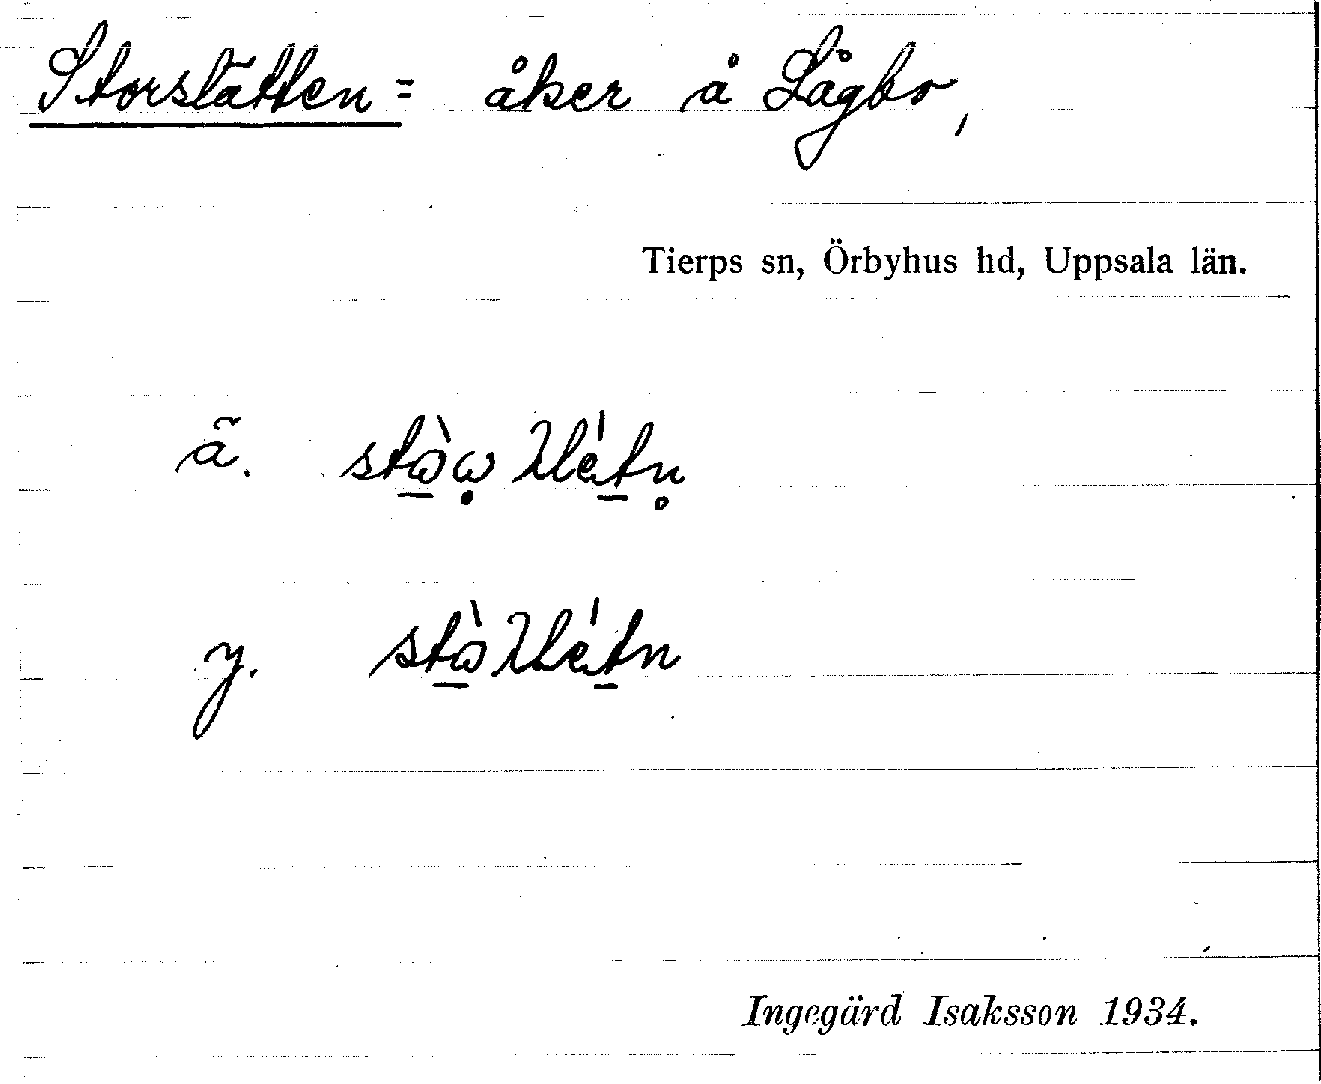 Storslätten = åker å Lågbo,
Tierps sn, Örbyhus hd, Uppsala län.
ä.
y.
Ingegärd Isaksson 1934.